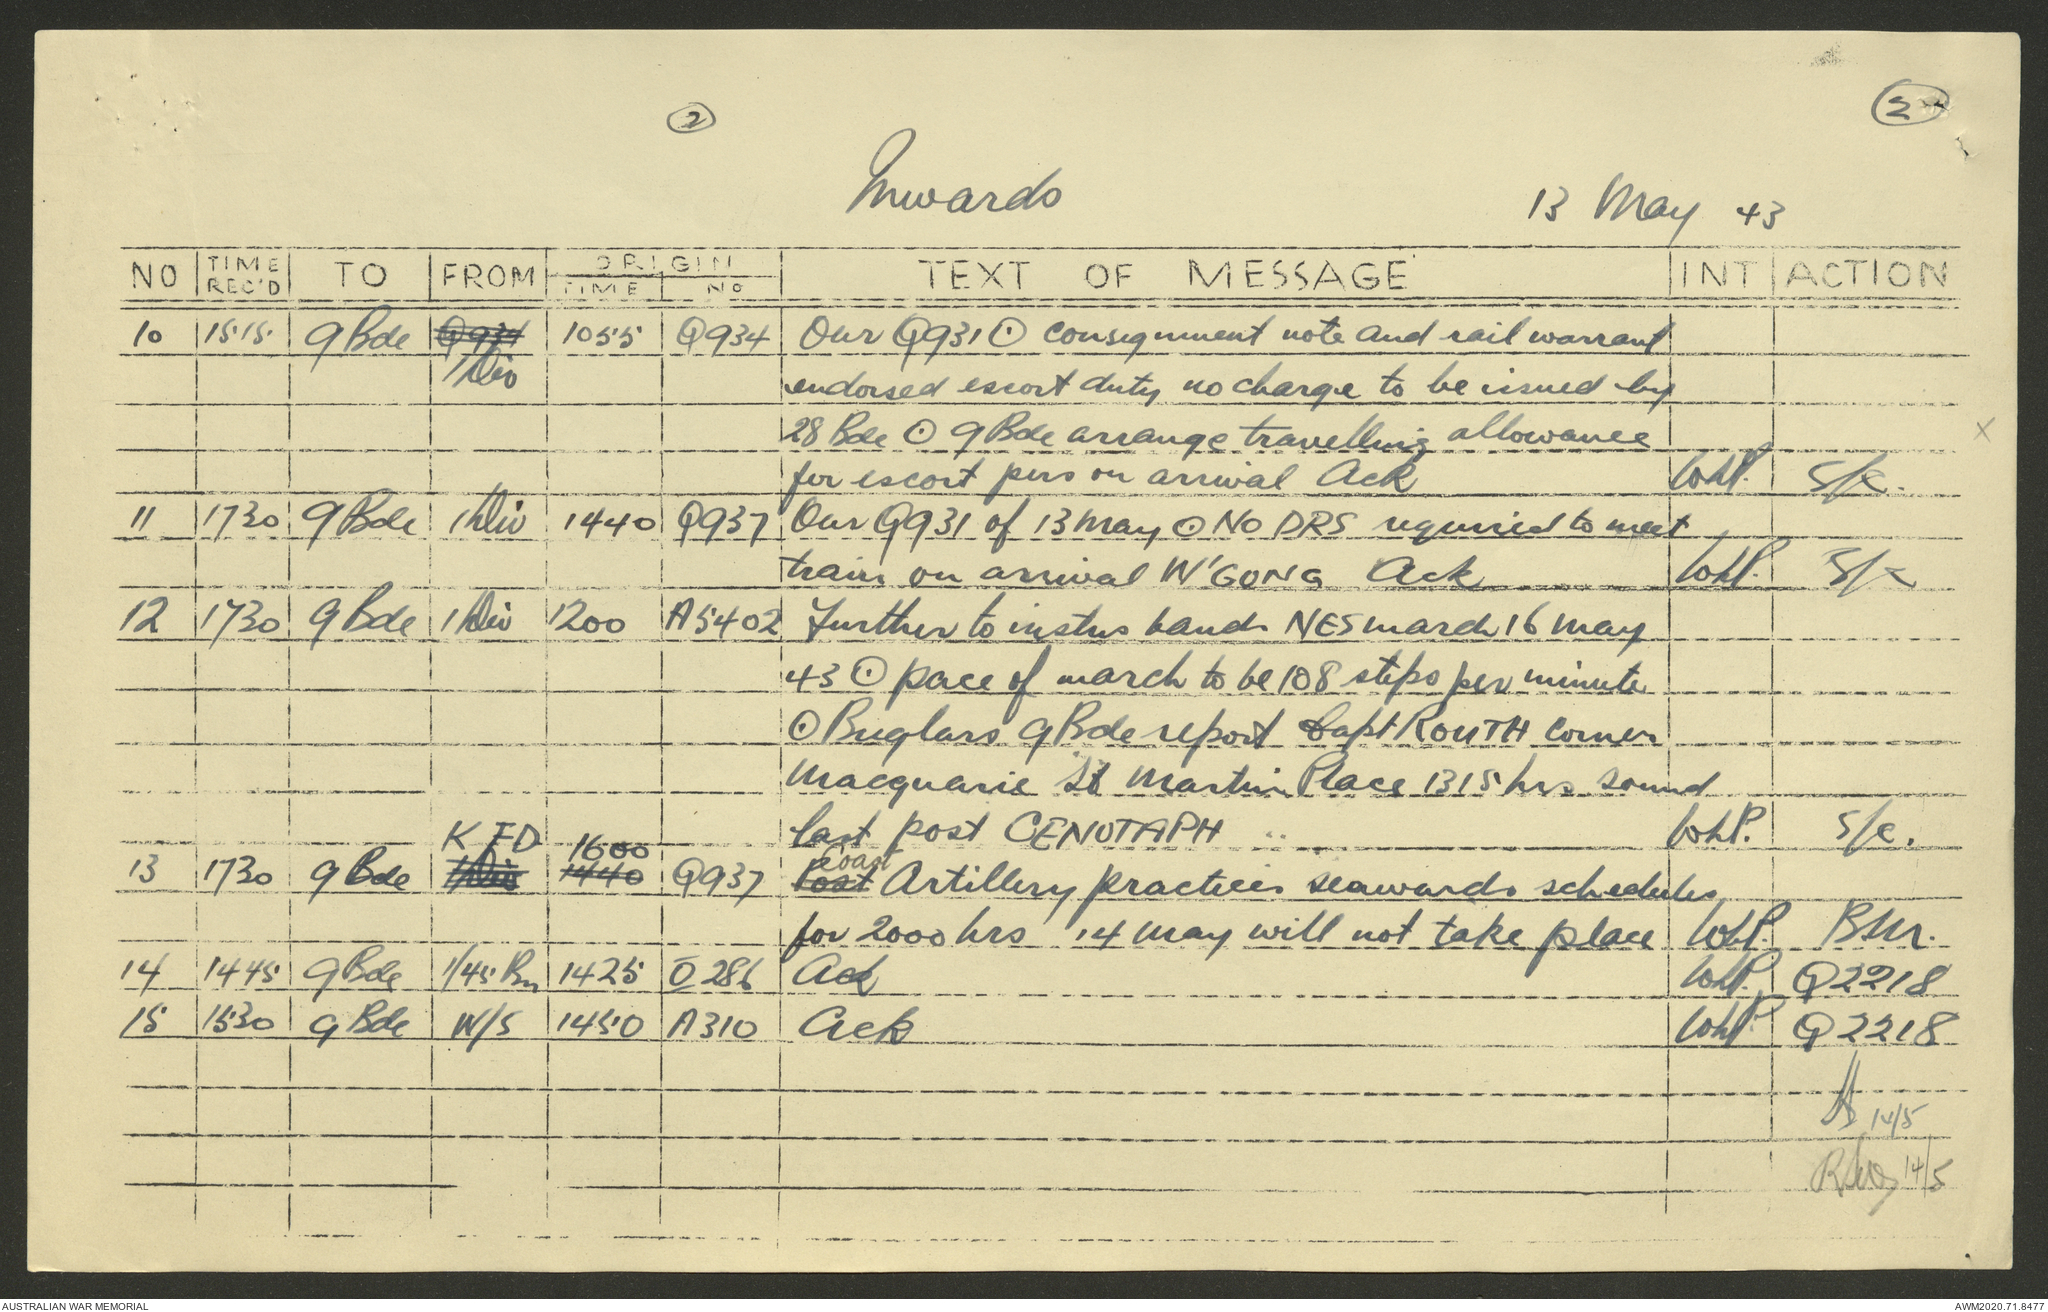 2
2
Inwards
13 May 43
NO TIME REC'D TO FROM ORIGIN TIME NO TEXT OF MESSAGE INT ACTION
10 1515 9 Bde Q934 1055 Q934 Our Q931 ⊙ consignment note and rail warrant
1 Div endorsed escort duty no charge to be issued by
28 Bde ⊙ 9 Bde arrange travelling allowance
for escort pers on arrival Ack WhP. S/c.
11 1730 9 Bde 1 Div 1440 Q937 Our Q931 of 13 May ⊙ NO DRS required to meet
train on arrival W'GONG Ack WhP. S/c
12 1730 9 Bde 1 Div 1200 A5402 Further to instns bands NES march 16 May
43 ⊙ pace of march to be 108 steps per minute
⊙ Buglars 9 Bde report Capt ROUTH corner
Macquarie St Martin Place 1315 hrs sound
last post CENOTAPH WhP. S/c.
13 1730 9 Bde 1 Div K FD 1440 1600 Q937 Post Coast Artillery practices seawards schedules
for 2000 hrs 14 May will not take place WhP. BM.
14 1445 9 Bde 1/45 Bn 1425 O 286 Ack WhP. Q2218
15 1530 9 Bde W/S 1450 A310 Ack WhP. Q2218
14/5
14/5
X
AUSTRALIAN WAR MEMORIAL
AWM2020.71.8477